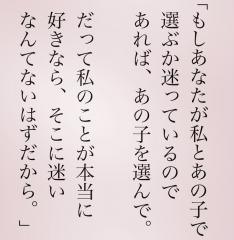 「もしあなたが私とあの子で
選ぶか迷っているので
あれば、あの子を選んで。
だって私のことが本当に
好きなら、そこに迷い
なんてないはずだから。」